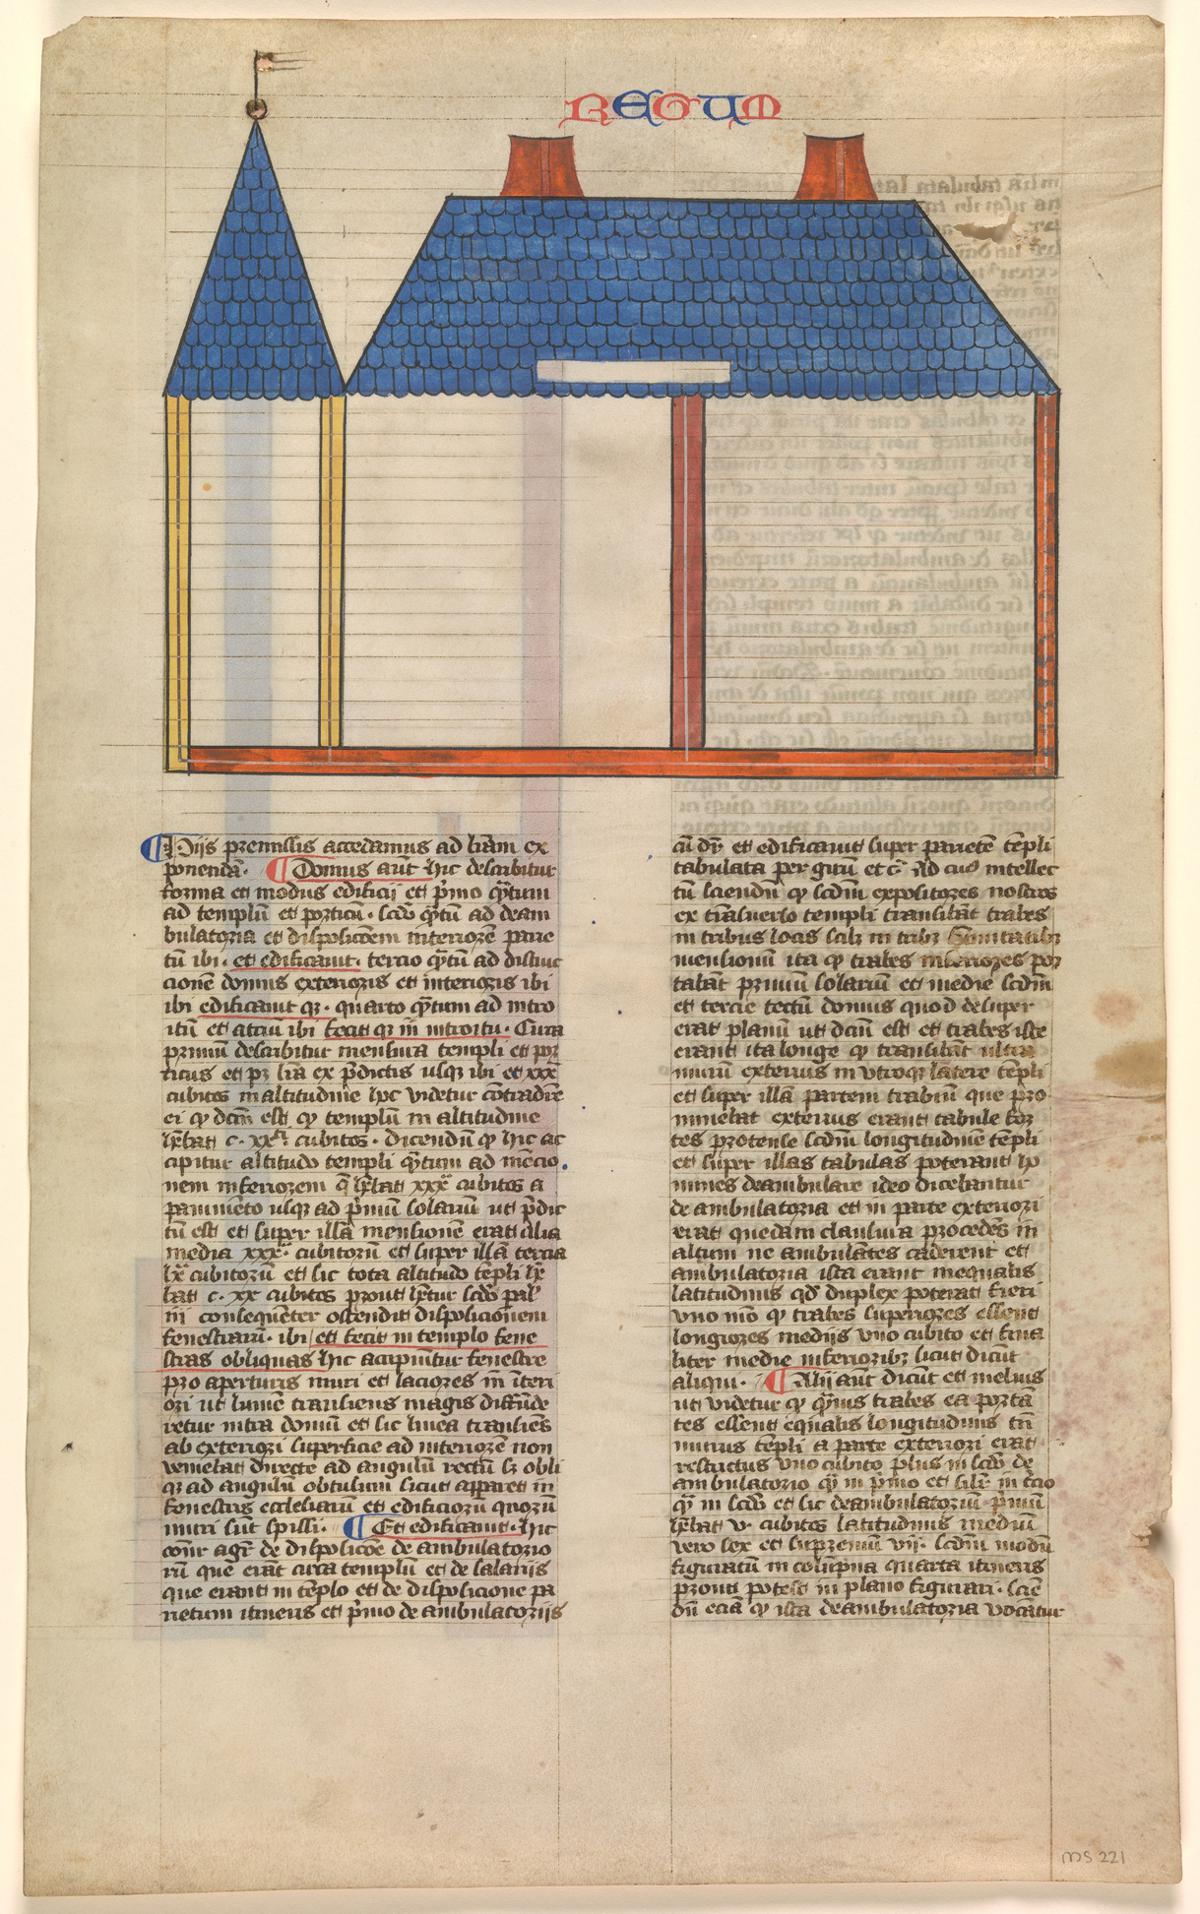 REGUM
Hiis premissis accedamus ad lr̄am ex
ponendā. Domus aūt hic describitur
forma et modus edificij et p̄mo q̄tum
ad templū et porticū. scḋo q̄tū ad deam
bulatoria et disposicōem interiorē parie
tū ibi. et edificauit. tercio q̄tū ad distinc
cionē domus exterioris et interioris ibi
ibi edificauit qꝫ. quarto q̄tum ad intro
itū et atriū ibi fecit qꝫ in introitu. Circa
primū describitur mensura templi et por
ticus et pꝫ lr̄a ex p̄dictis usqꝫ ibi et xxx
cubitos in altitudine hoc videtur cōtradire
ei qꝫ dc̄m est qꝫ templū in altitudine
h̄ebat c. xxᵗⁱ cubitos. dicendū qꝫ hic ac
cipitur altitudo templi q̄tum ad mēcio
nem inferiorem q̄ h̄ebat xxx cubitos a
pauimēto usqꝫ ad p̄mū solariū ut p̄dic
tū est et super illā mensionē erat alia
media xxx. cubitorū et super illā tercia
lx cubitorū et sic tota altitudo tēpli h̄e
bat c. xx cubitos prout h̄etur scḋo pal'
iij consequēter ostendit disposicionem
fenestrarū. ibi et fecit in templo fene
stras obliquas hic accipiūtur fenestre
pro aperturis muri et laciores in īteri
ori ut lumē transiens magis diffūde
retur intra domū et sic linea transiēs
ab exteriori superficie ad interiorē non
veniebat directe ad angulū rectū sꝫ obli
qꝫ ad angulū obtusum sicut apparet in
fenestris ecclesiarū et edificiorū quorū
muri sūt spissi. Et edificauit. hic
cōnr̄ agit' de disposicōe deambulatorio
rū que erāt circa templū et de solariis
que erant in tēplo et de disposicione pa
rietum itineris et p̄mo de ambulatoriis
cū dr̄ et edificauit super parietē tēpli
tabulata per girū et c̄ Ad cuius intellec
tū sciendū qꝫ scḋm expositores nostros
ex trāsuerso templi transibāt trabes
in tribus locis scilꝫ in tribꝫ sūmitatibꝫ
mensionū ita qꝫ trabes inferiores por
tabāt primū solariū et medie scḋm
et tercie tectū domus quod desuper
erat planū ut dc̄m est et trabes iste
erant ita longe qꝫ transibāt ultra
murū exterius in utroqꝫ latere tēpli
et super illā partem trabiū que pro
minebat exterius erant tabule for
tes protense scḋm longitudinē tēpli
et super illas tabulas poterant ho
mines deambulare ideo dicebantur
deambulatoria et in parte exteriori
erat quedam clausura procedēs in
altum ne ambulātes caderent et
ambulatoria ista erant inequalis
latitudinis qḋ duplex poterat fieri
uno mo qꝫ trabes superiores essent
longiores mediis uno cubito et simi
liter medie inferioribꝫ sicut dicūt
aliqui. Alij aūt dicūt et melius
ut videtur qꝫ q̄mis trabes ea portā
tes essent equalis longitudinis tn̄
murus tēpli a parte exteriori erat
restrictus uno cubito plus in scḋo de
ambulatorio q̄ in p̄mo et sil'r in t̄cio
q̄ in scḋo et sic deambulatoriū p̄mū
h̄ebat v. cubitos latitudinis mediū
vero sex et supremū vij. scḋm modū
figuratū in colūpna quarta itineris
prout potest in plano figurari. scie
dū eciā qꝫ ista deambulatoria vocātur
MS 221